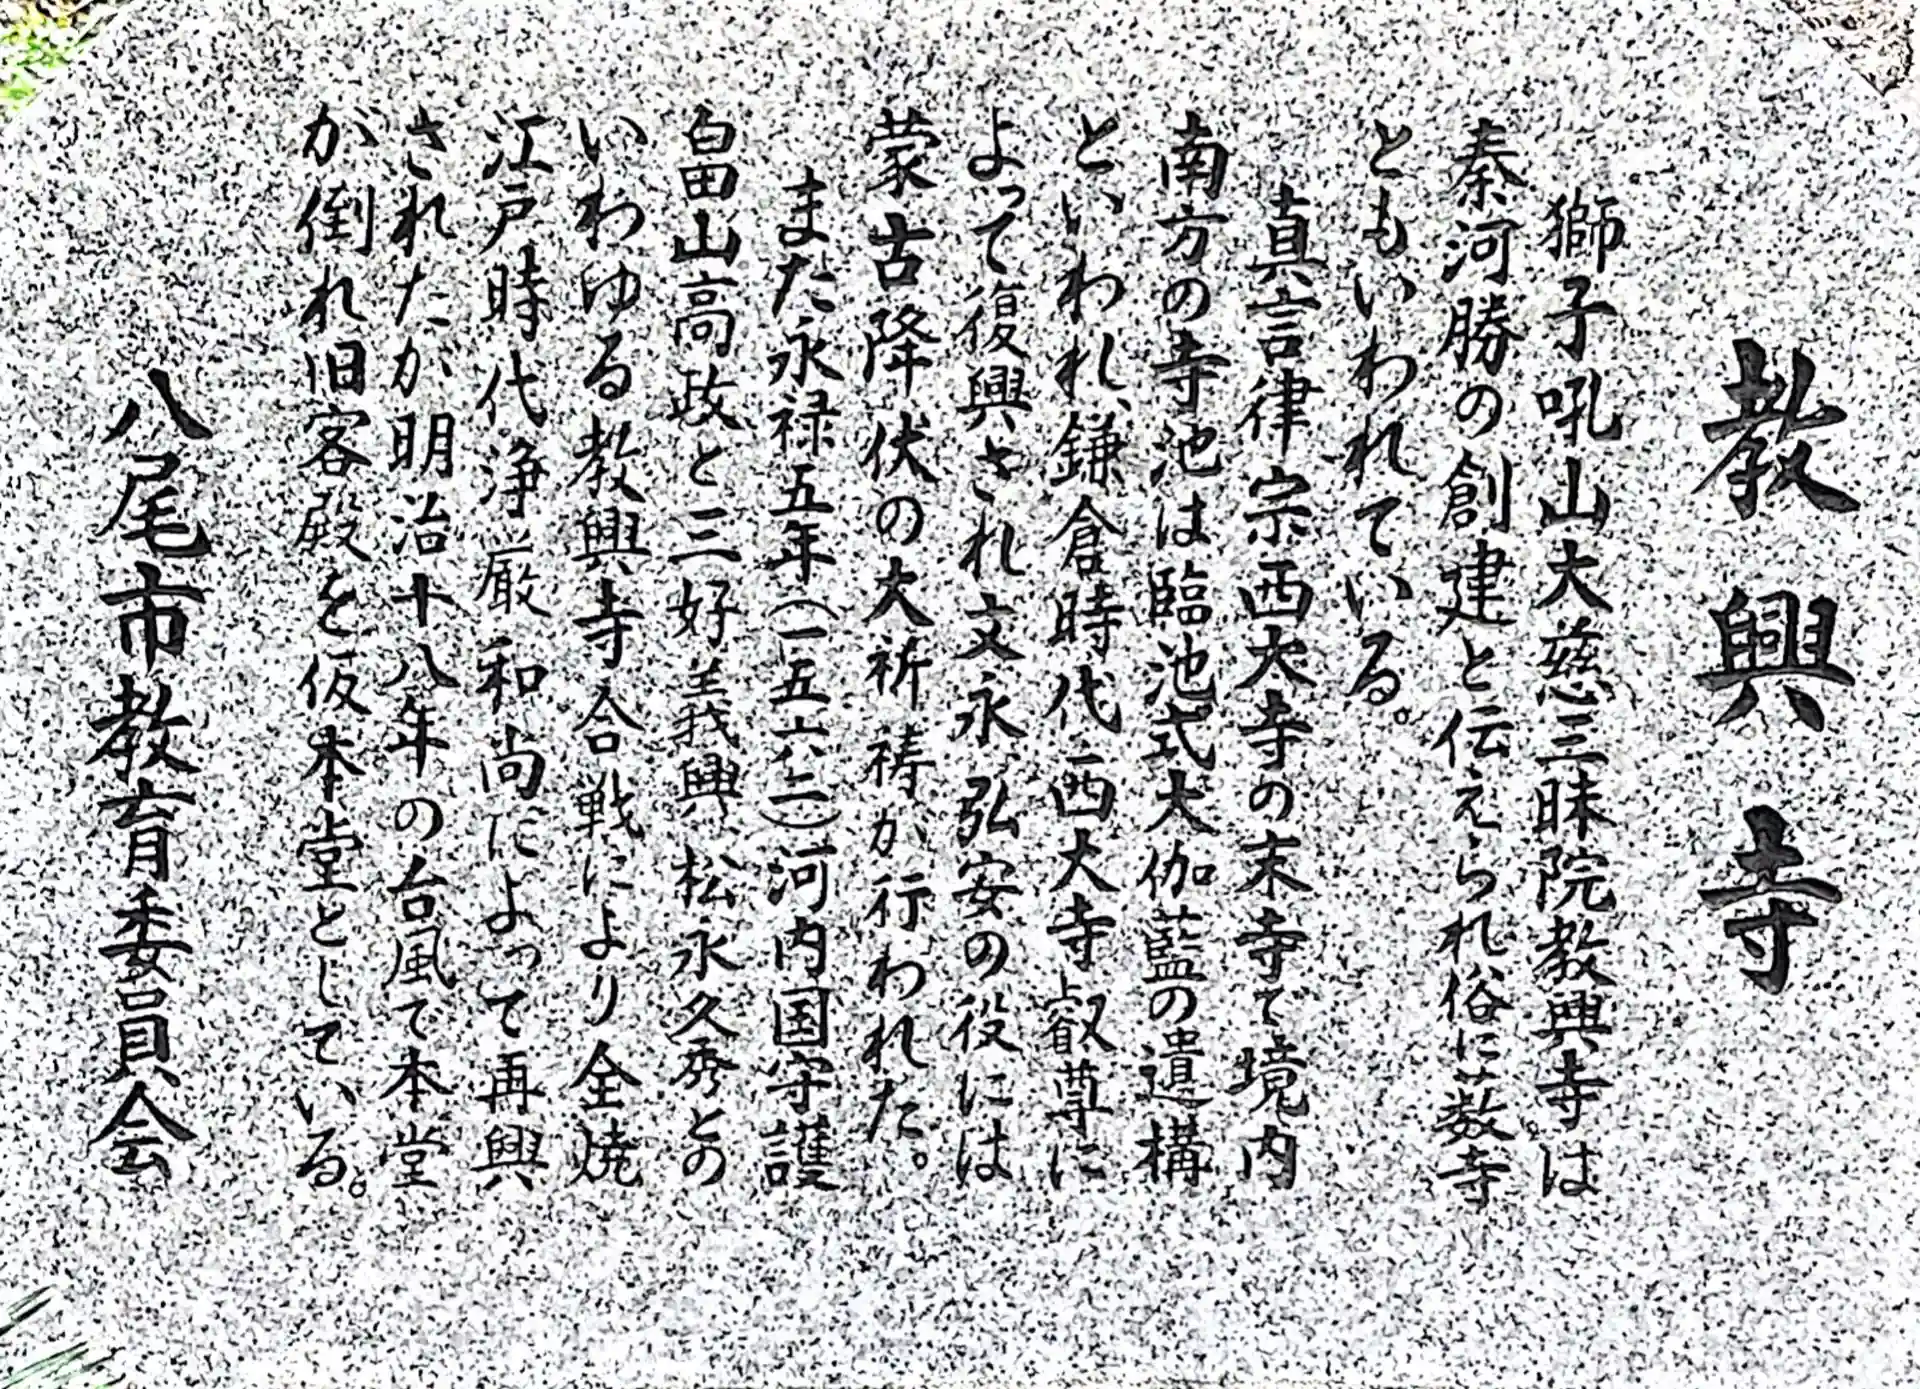 教興寺
獅子吼山大慈三昧院教興寺は
秦河勝の創建と伝えられ俗に薮寺
ともいわれている。
真言律宗西大寺の末寺で境内
南方の寺池は臨池式大伽藍の遺構
といわれ、鎌倉時代西大寺叡尊に
よって復興され文永弘安の役には
蒙古降伏の大祈祷が行われた。
また永禄五年(一五六二)河内国守護
畠山高政と三好義興松永久秀との
いわゆる教興寺合戦により全焼
江戸時代浄厳和尚によって再興
されたが明治十八年の台風で本堂
が倒れ旧客殿を仮本堂としている。
八尾市教育委員会